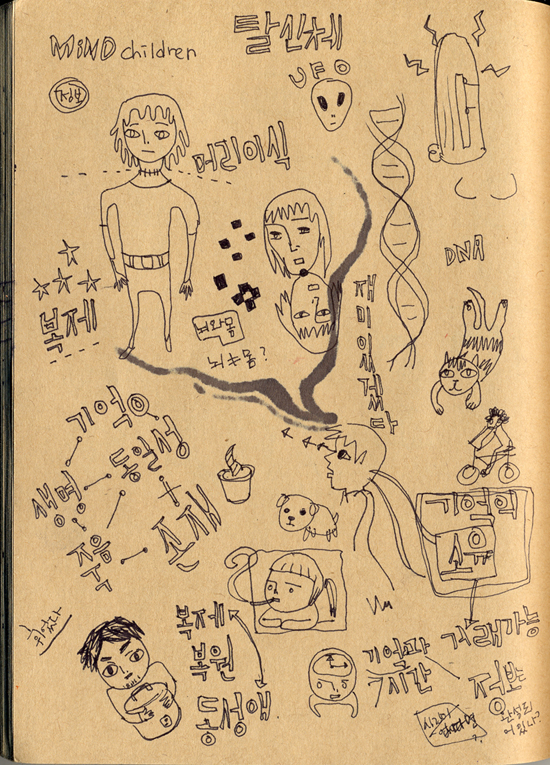 MiND children
탈신체
UFO
정보
머리이식
DNA
복제
뇌와몸
뇌≠몸?
재미있겠다
기억의
동일성
생명
죽음
존재
기억의
소유
거래가능
정보는
완성되
어 있나?
복제
복원
동성애
기억과
시간